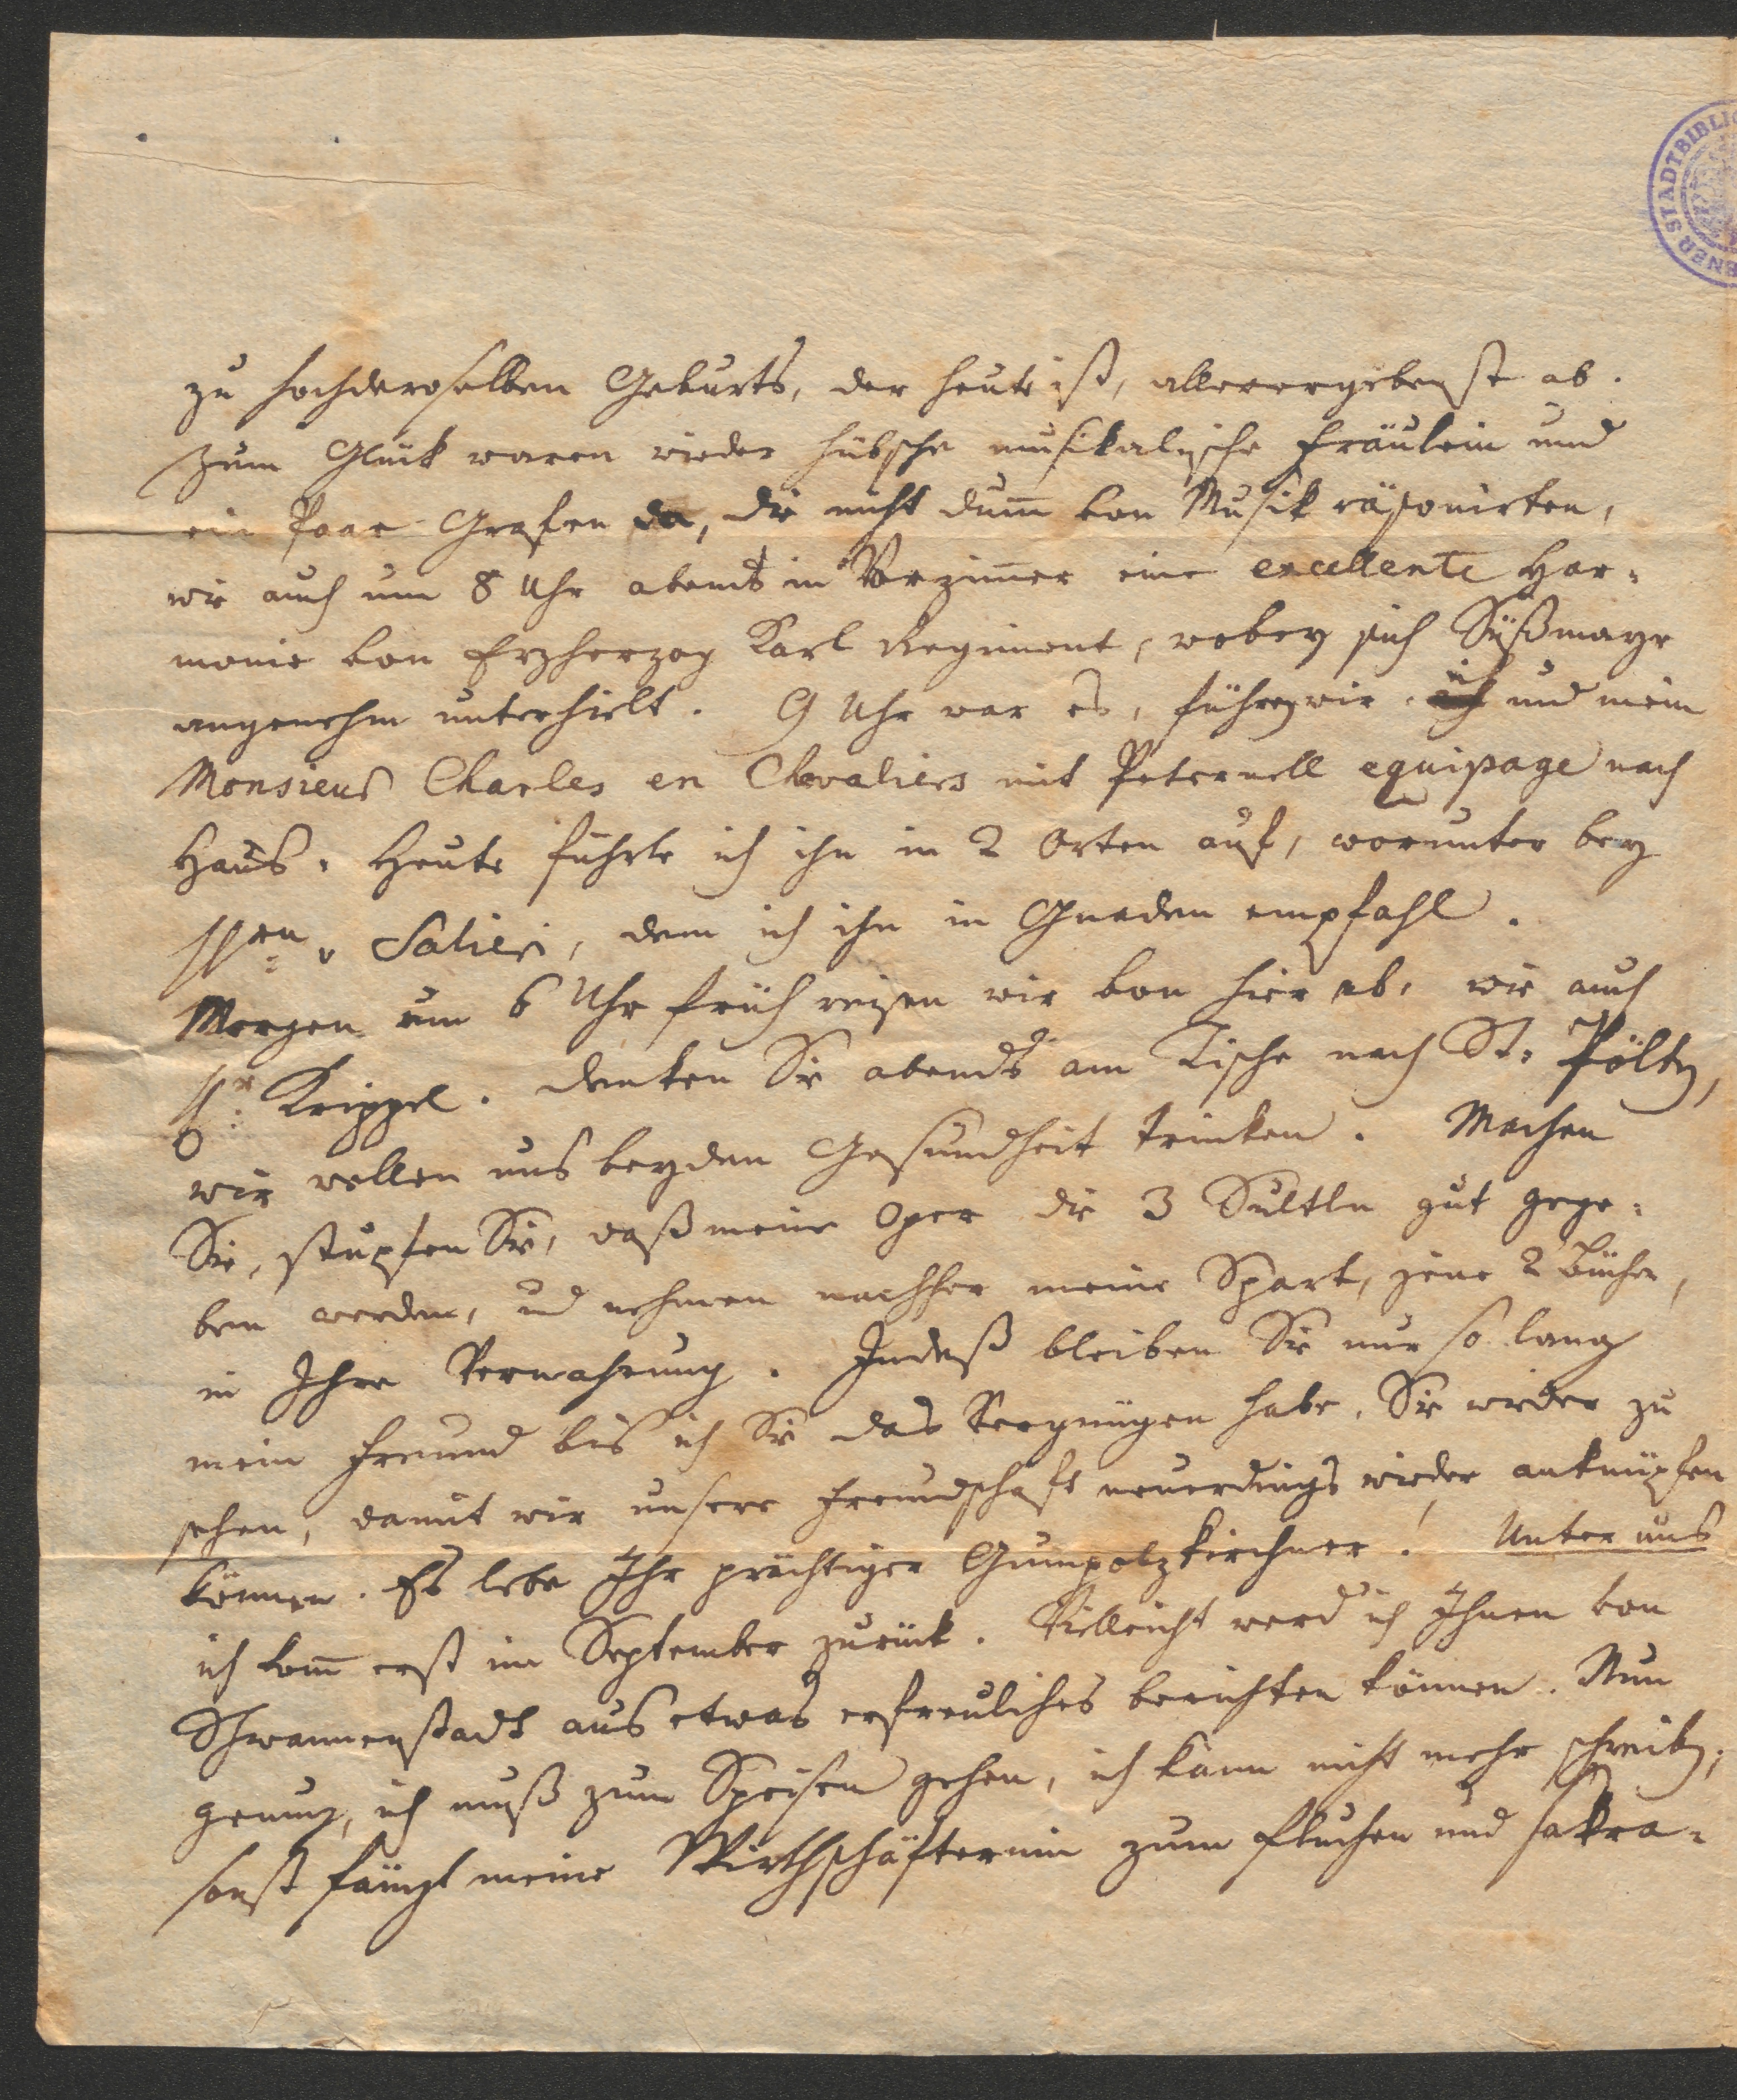 WIENER STADTBIBLIO
zu hochderoselben Geburts, der heute ist, allerergebenst ab.
Zum Glück waren wieder hübsche musikalische Fräulein und
ein Paar Grafen da, die nicht dum̅ von Musik räsonirten,
wie auch um 8 Uhr abends im Vorzim̅er eine excellente Har=
monie von Erzherzog Karl Regiment, wobey sich Süßmayr
angenehm unterhielt. 9 Uhr war es, fuhren wir, ich und mein
Monsieur Charles en Chevaliers mit Peternell equipage nach
Haus. Heute führte ich ihn in 2 Orten auf, worunter bey
H:en v Salieri, dem ich ihn in Gnaden empfahl.
Morgen um 6 Uhr früh reisen wir von hier ab, wie auch
H:r Krippel. denken Sie abends am Tische nach St. Pölten,
wir wollen uns beyden Gesundheit trinken. Machen
Sie, stupfen Sie, daß meine Oper die 3 Sultln gut gege=
ben werden, und nehmen nachher meine Spart, jene 2 Bücher,
in Ihre Verwahrung. Indeß bleiben Sie nur so lang
mein Freund bis ich Sie das Vergnügen habe, Sie wieder zu
sehen, damit wir unsere Freundschaft neuerdings wieder anknüpfen
können. Es lebe Ihr prächtiger Gumpolzkirchner! Unter uns
ich kom̅ erst im September zurück. Vielleicht werd ich Ihnen von
Schwannenstadt aus etwas erfreuliches berichten können. Nun
genug, ich muß zum Speisen gehen, ich kann nicht mehr schreiben,
sonst fängt meine Wirthschäfterinn zum fluchen und sakra=